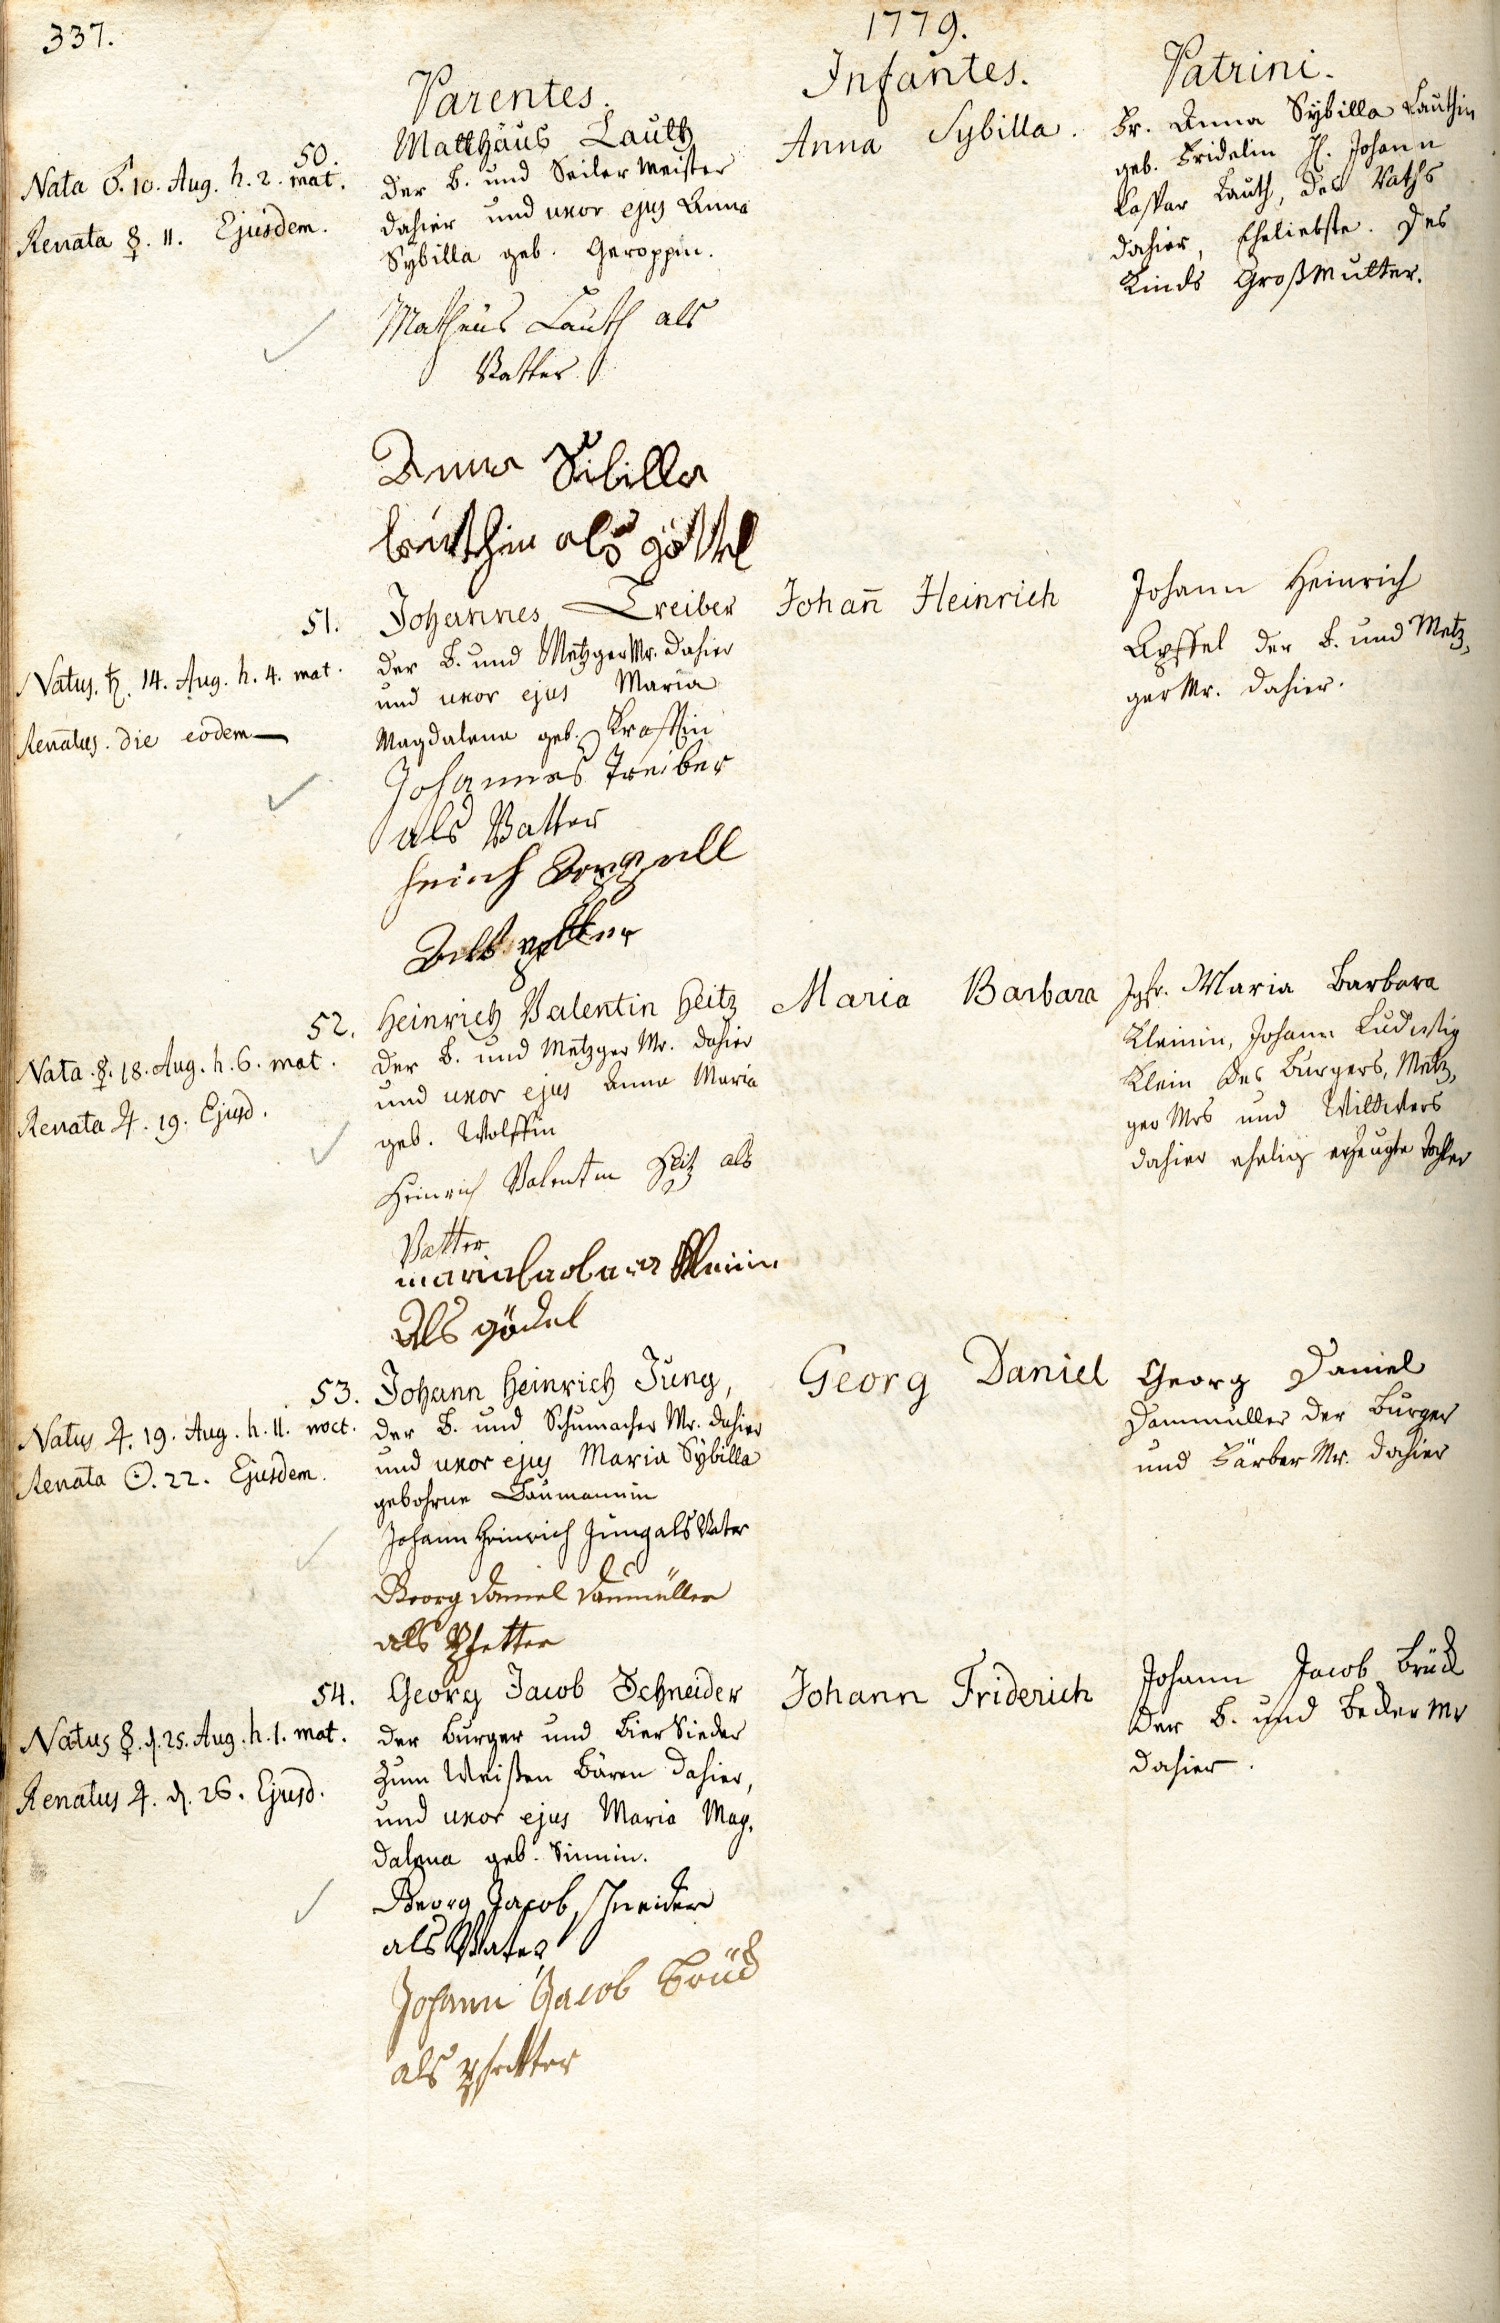 337.
1779.
Parentes.
Infantes.
Patrini.
50.
Nata ♂. 10. Aug. h. 2. mat.
Renata ☿. 11. Ejusdem.
Matthäus Lauth
der B. und Seiler Meister
dahier und uxor ejus Anna
Sybilla geb. Geroppin.
Matheus Lauth als
Vatter
Anna Sibilla
lauthin als göttel
Anna Sybilla.
Fr. Anna Sybilla Lauthin
geb. Fridelin H. Johann
Caspar Lauth, des Raths
dahier, Eheliebste. Des
Kinds Großmutter.
51.
Natus. ♄. 14. Aug. h. 4. mat.
Renatus. die eodem
Johannes Treiber
der B. und Metzger Mr. dahier
und uxor ejus Maria
Magdalena geb. Krafftin
Johannes Treiber
als Vatter
Johan̄ Heinrich
Johann Heinrich
der B. und Metz,
ger Mr. dahier.
52.
Nata. ☿. 18. Aug. h. 6. mat.
Renata ♃. 19. Ejusd.
Heinrich Valentin Heitz
der B. und Metzger Mr. dahier
und uxor ejus Anna Maria
geb. Wolffin
Heinrich Valentin Heitz als
Vatter
maria barbara Kleinin
Als gödel
Maria Barbara
Jgfr. Maria Barbara
Kleinin, Johann Ludwig
Klein des Burgers, Metz,
ger Mrs und
dahier ehelig erzeugte Tochter
53.
Natus ♃. 19. Aug. h. 11. noct.
Renata ☉. 22. Ejusdem.
Johann Heinrich Jung,
der B. und Schumacher Mr. dahier
und uxor ejus Maria Sybilla
gebohrne Baumannin
Johann Heinrich Jung als Vater
Georg Daniel Danmüller
als Pfetter
Georg Daniel
Georg Daniel
Danmuller der Burger
und Färber Mr. dahier
54.
Natus ☿. d. 25. Aug. h. 1. mat.
Renatus ♃. d. 26. Ejusd.
Georg Jacob Schneider
der Burger und Bier Sieder
zum Weißen Bären dahier,
und uxor ejus Maria Mag,
dalena geb. Sinnin.
Georg Jacob schneider
als Vater
Johann Jacob Brück
als pfetter
Johann Friderich
Johann Jacob Brück
der B. und Becker Mr
dahier.